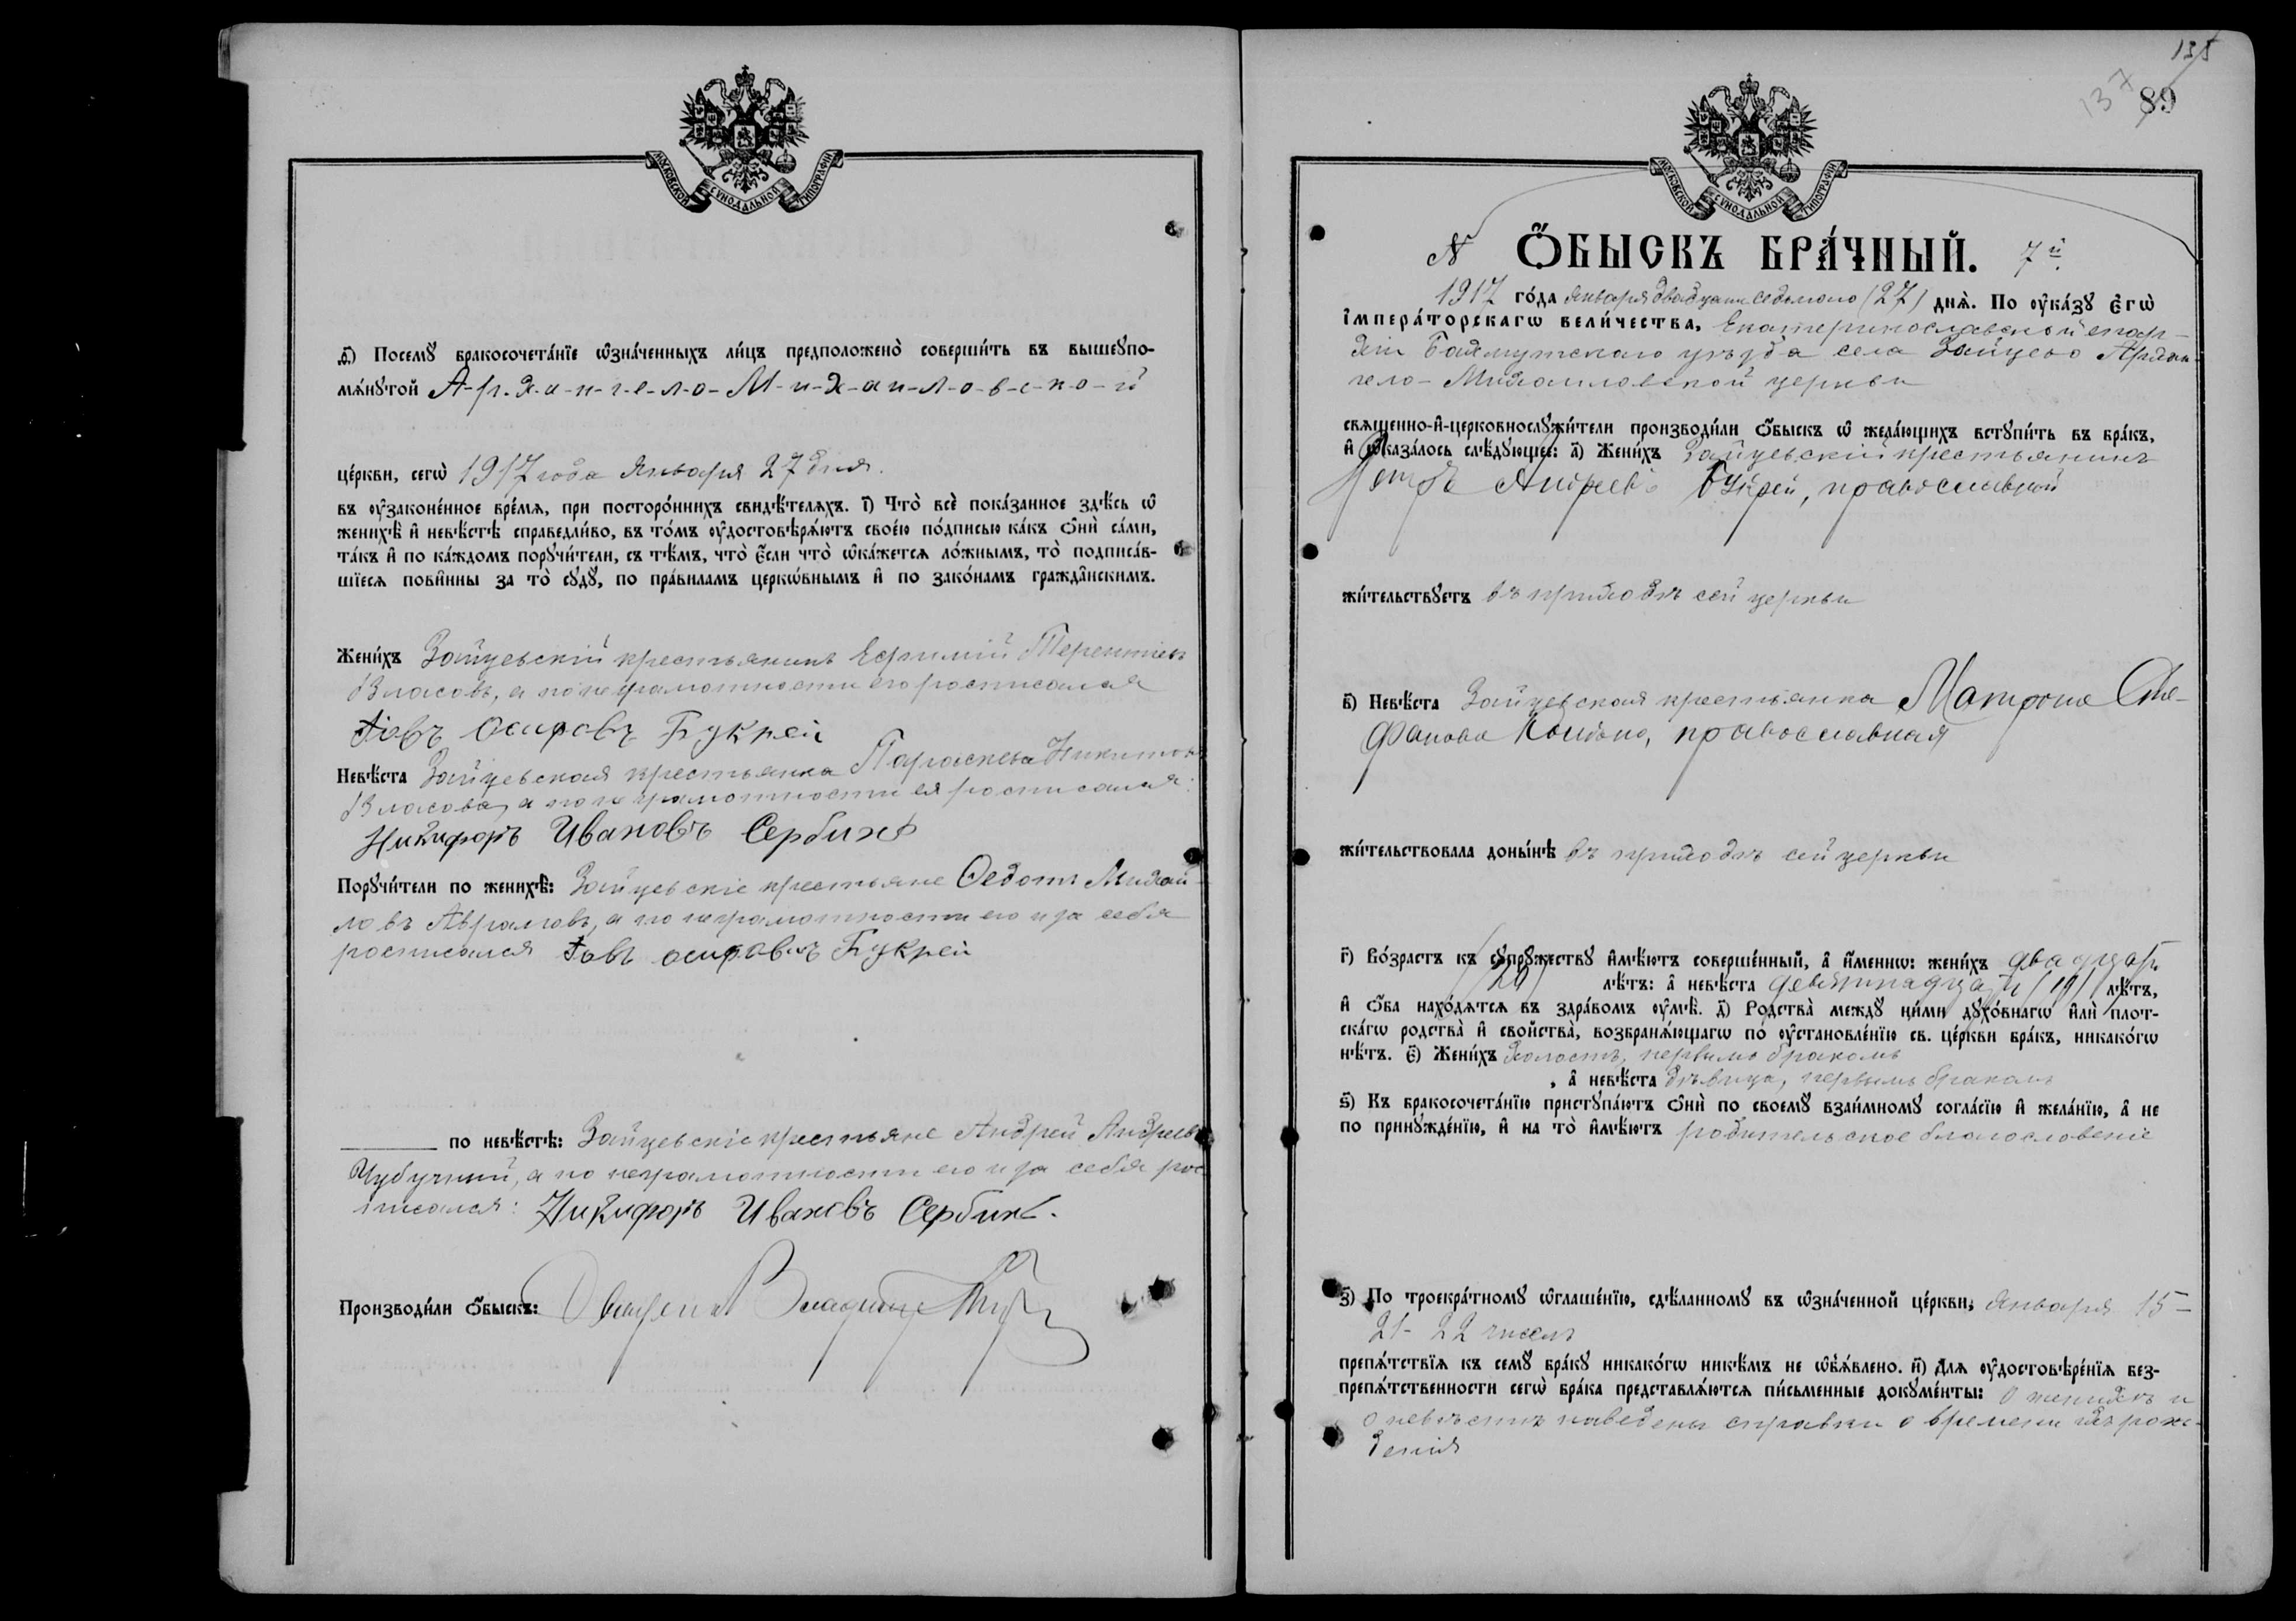 МОСКОВСКОЙ СѴНОДАЛЬНОЙ ТИПОГРАФІИ
ѳ҃) Посемꙋ бракосочета́нїе ѡ҆зна́ченныхъ ли́цъ предположено̀ соверши́ть въ вышеꙋпо-
мѧ́нꙋтой А-р-х-а-н-г-е-л-о-М-и-х-а-и-л-о-в-с-к-о-й
це́ркви, сегѡ̀ 1917 года Января 27 дня.
въ ᲂу҆законе́нное вре́мѧ, при посторо́ннихъ свидѣ́телѧхъ. і҃) Что̀ всѐ пока́занное здѣ́сь ѡ҆
женихѣ̀ и҆ невѣ́стѣ справедли́во, въ то́мъ ᲂу҆достовѣрѧ́ютъ свое́ю по́дписью ка́къ ѻ҆нѝ са́ми,
та́къ и҆ по ка́ждомъ порꙋчи́тели, съ тѣ́мъ, что̀ є҆́сли что̀ ѡ҆ка́жетсѧ ло́жнымъ, то̀ подписа́в-
шїесѧ пови́нны за то̀ сꙋдꙋ̀, по пра́виламъ церкѡ́внымъ и҆ по зако́намъ гражда́нскимъ.
Жени́хъ Зайцевскій крестьянинъ Ефимій Терентіевъ
Власовъ, а по неграмотности его росписался
Іовъ Осиповъ Букрей
Невѣ́ста Зайцевская крестьянка Параскева Никитова
Власова, а по неграмотности ея росписался:
Никифоръ Ивановъ Сербинъ
Порꙋчи́тели по женихѣ̀: Зайцевскіе крестьяне Ѳедотъ Михай-
ловъ Аврамовъ, а по неграмотности его и за себя
росписался Іовъ осиповъ Букрей
по невѣ́стѣ: Зайцевскіе крестьяне Андрей Андреевъ
Чубучный, а по неграмотности его и за себя рос
писался: Никифоръ Ивановъ Сербинъ.
Производи́ли ѻ҆́быскъ:
135
137
89
МОСКОВСКОЙ СѴНОДАЛЬНОЙ ТИПОГРАФІИ
N Ѻ҆́БЫСКЪ БРА́ЧНЫЙ. 7й
1917 го́да января двадцать седьмого (27) днѧ̀. По ᲂу҆ка́зꙋ Є҆гѡ̀
І҆мпера́торскагѡ вели́чества, Екатеринославской епар-
хіи Бахмутскаго уѣзда села Зайцево Архан-
гело-Михаиловской церкви
свѧщенно-и҆-церковнослꙋжи́тели производи́ли ѻ҆́быскъ ѡ҆ жела́ющихъ встꙋпи́ть въ бра́къ,
и҆ ѡ҆каза́лось слѣ́дꙋющее: а҃) Жени́хъ Зайцевскій крестьянинъ
Петръ Андреевъ Букрей, православный
жи́тельствꙋетъ въ приходѣ сей церкви
в҃) Невѣ́ста Зайцевская крестьянка Матрона Сте-
фанова, православная
жи́тельствовала доны́нѣ въ приходѣ сей церкви
г҃) Во́зрастъ къ сꙋпрꙋ́жествꙋ и҆мѣ́ютъ соверше́нный, а҆ и҆́меннѡ: жени́хъ двадцать
(20) лѣ́тъ: а҆ невѣ́ста девятнадцать (19) лѣ́тъ,
и҆ ѻ҆́ба нахо́дѧтсѧ въ здра́вомъ ᲂу҆мѣ̀. д҃) Родства̀ междꙋ̀ ни́ми дꙋхо́внагѡ и҆лѝ плот-
ска́гѡ родства̀ и҆ сво́йства̀, возбранѧ́ющагѡ по ᲂу҆становле́нїю св. це́ркви бра́къ, никако́гѡ
нѣ́тъ. є҃) Жени́хъ холостъ, первымъ бракомъ
, а҆ невѣ́ста дѣвица, первымъ бракомъ
ѕ҃) Къ бракосочета́нїю пристꙋпа́ютъ ѻ҆нѝ по своемꙋ̀ взаи́мномꙋ согла́сїю и҆ жела́нїю, а҆ не
по принꙋжде́нїю, и҆ на то̀ и҆мѣ́ютъ родительское благословеніе
з҃) По троекра́тномꙋ ѡ҆глаше́нїю, сдѣ́ланномꙋ въ ѡ҆зна́ченной це́ркви, января 15-
21-22 чиселъ
препѧ́тствїѧ къ семꙋ̀ бра́кꙋ никако́гѡ никѣ́мъ не ѡ҆б̾ѧ́влено. и҃) Для ᲂу҆достовѣре́нїѧ без-
препѧ́тственности сегѡ̀ бра́ка представлѧ́ютсѧ пи́сьменные докꙋме́нты: О женихѣ и
о невѣстѣ наведены справки о времени ихъ рож-
денія